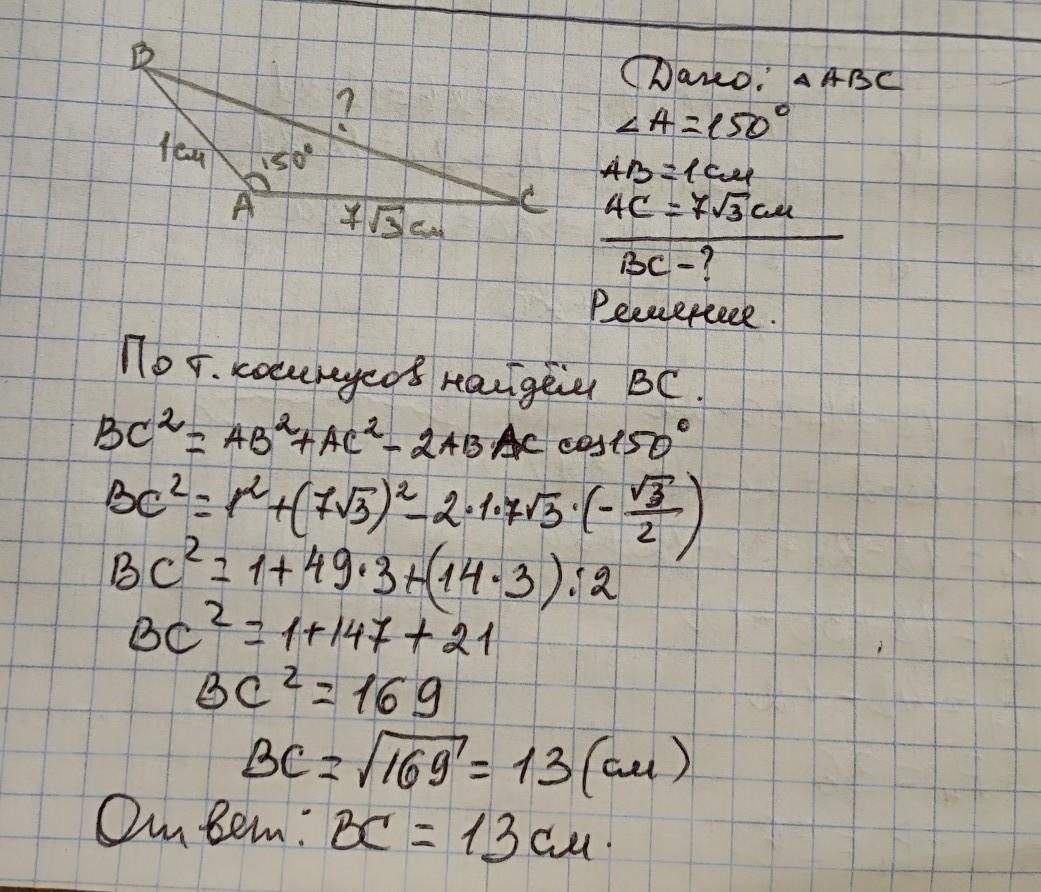 B
?
1см
150°
A
C
7√3 см
Дано: △ABC
∠A = 150°
AB = 1 см
AC = 7√3 см
BC - ?
Решение.
По т. косинусов найдём BC.
BC² = AB² + AC² - 2AB·AC cos150°
BC² = 1² + (7√3)² - 2·1·7√3·(-√3/2)
BC² = 1 + 49·3 + (14·3):2
BC² = 1 + 147 + 21
BC² = 169
BC = √169 = 13 (см)
Ответ: BC = 13 см.